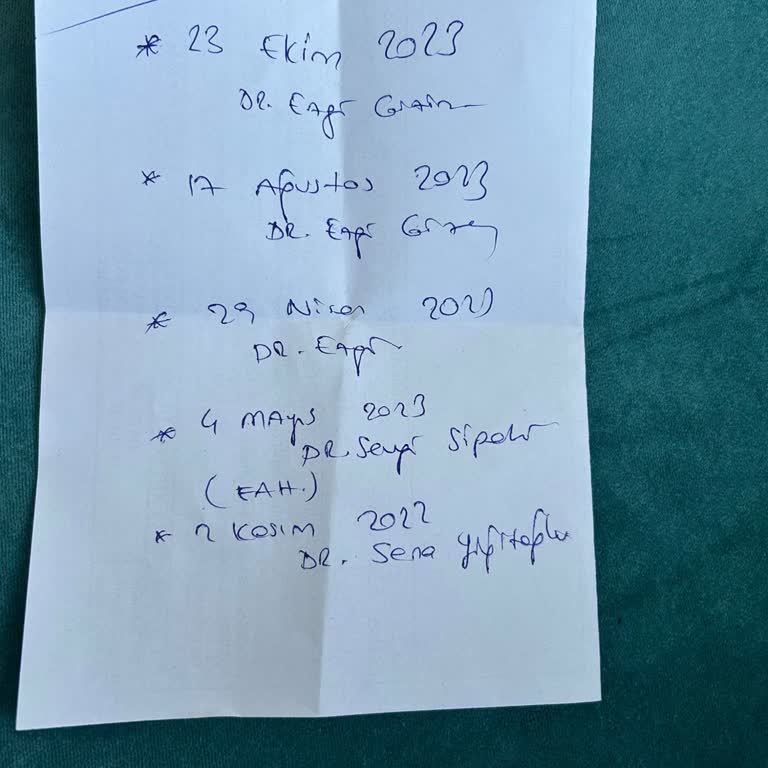 * 23 Ekim 2023
DR. Ezgi
* 17 Ağustos 2023
DR. Ezgi
* 29 Nisan 2023
DR. Ezgi
* 4 MAyıs 2023
DR. Sevgi Sipahi
(EAH.)
* 2 Kasım 2022
DR. Sena Yiğitoğlu